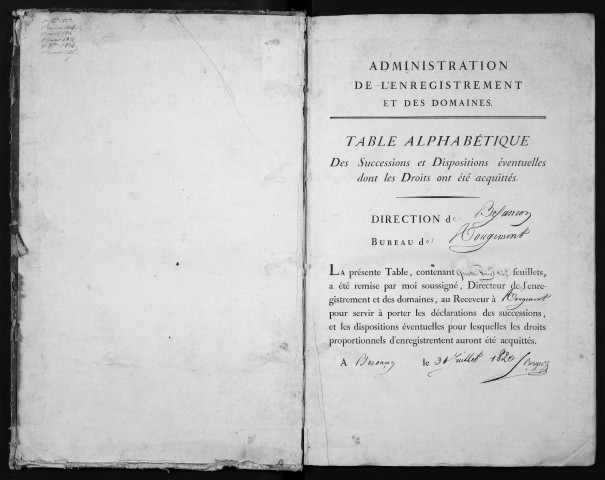 ADMINISTRATION
DE L'ENREGISTREMENT
ET DES DOMAINES.
TABLE ALPHABÉTIQUE
Des Successions et Dispositions éventuelles
dont les Droits ont été acquittés.
DIRECTION de Besançon
BUREAU de Rougemont
LA présente Table, contenant feuillets,
a été remise par moi soussigné, Directeur de l'enre-
gistrement et des domaines, au Receveur à Rougemont
pour servir à porter les déclarations des successions,
et les dispositions éventuelles pour lesquelles les droits
proportionnels d'enregistrement auront été acquittés.
A Besançon le 31 Juillet 1820